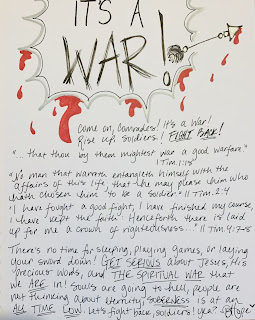 IT'S A
WAR!
Come on, Comrades! It's a War!
Rise up, Soldiers! FIGHT BACK!
"...that thou by them mightest war a good warfare."
1 Tim. 1:18
"No man that warreth entangleth himself with the
affairs of this life; that he may please him who
hath chosen him to be a soldier." II Tim. 2:4
I have fought a good fight, I have finished my course,
I have kept the faith: Henceforth there is laid
up for me a crown of righteousness..." II Tim. 4:7-8
There's no time for sleeping, playing games, or laying
your sword down! GET SERIOUS about Jesus, His
precious words, and THE SPIRITUAL WAR that
we ARE in! Souls are going to hell, people are
not thinking about eternity, SOBERNESS is at an
ALL TIME LOW. Let's fight back, soldiers! yea?